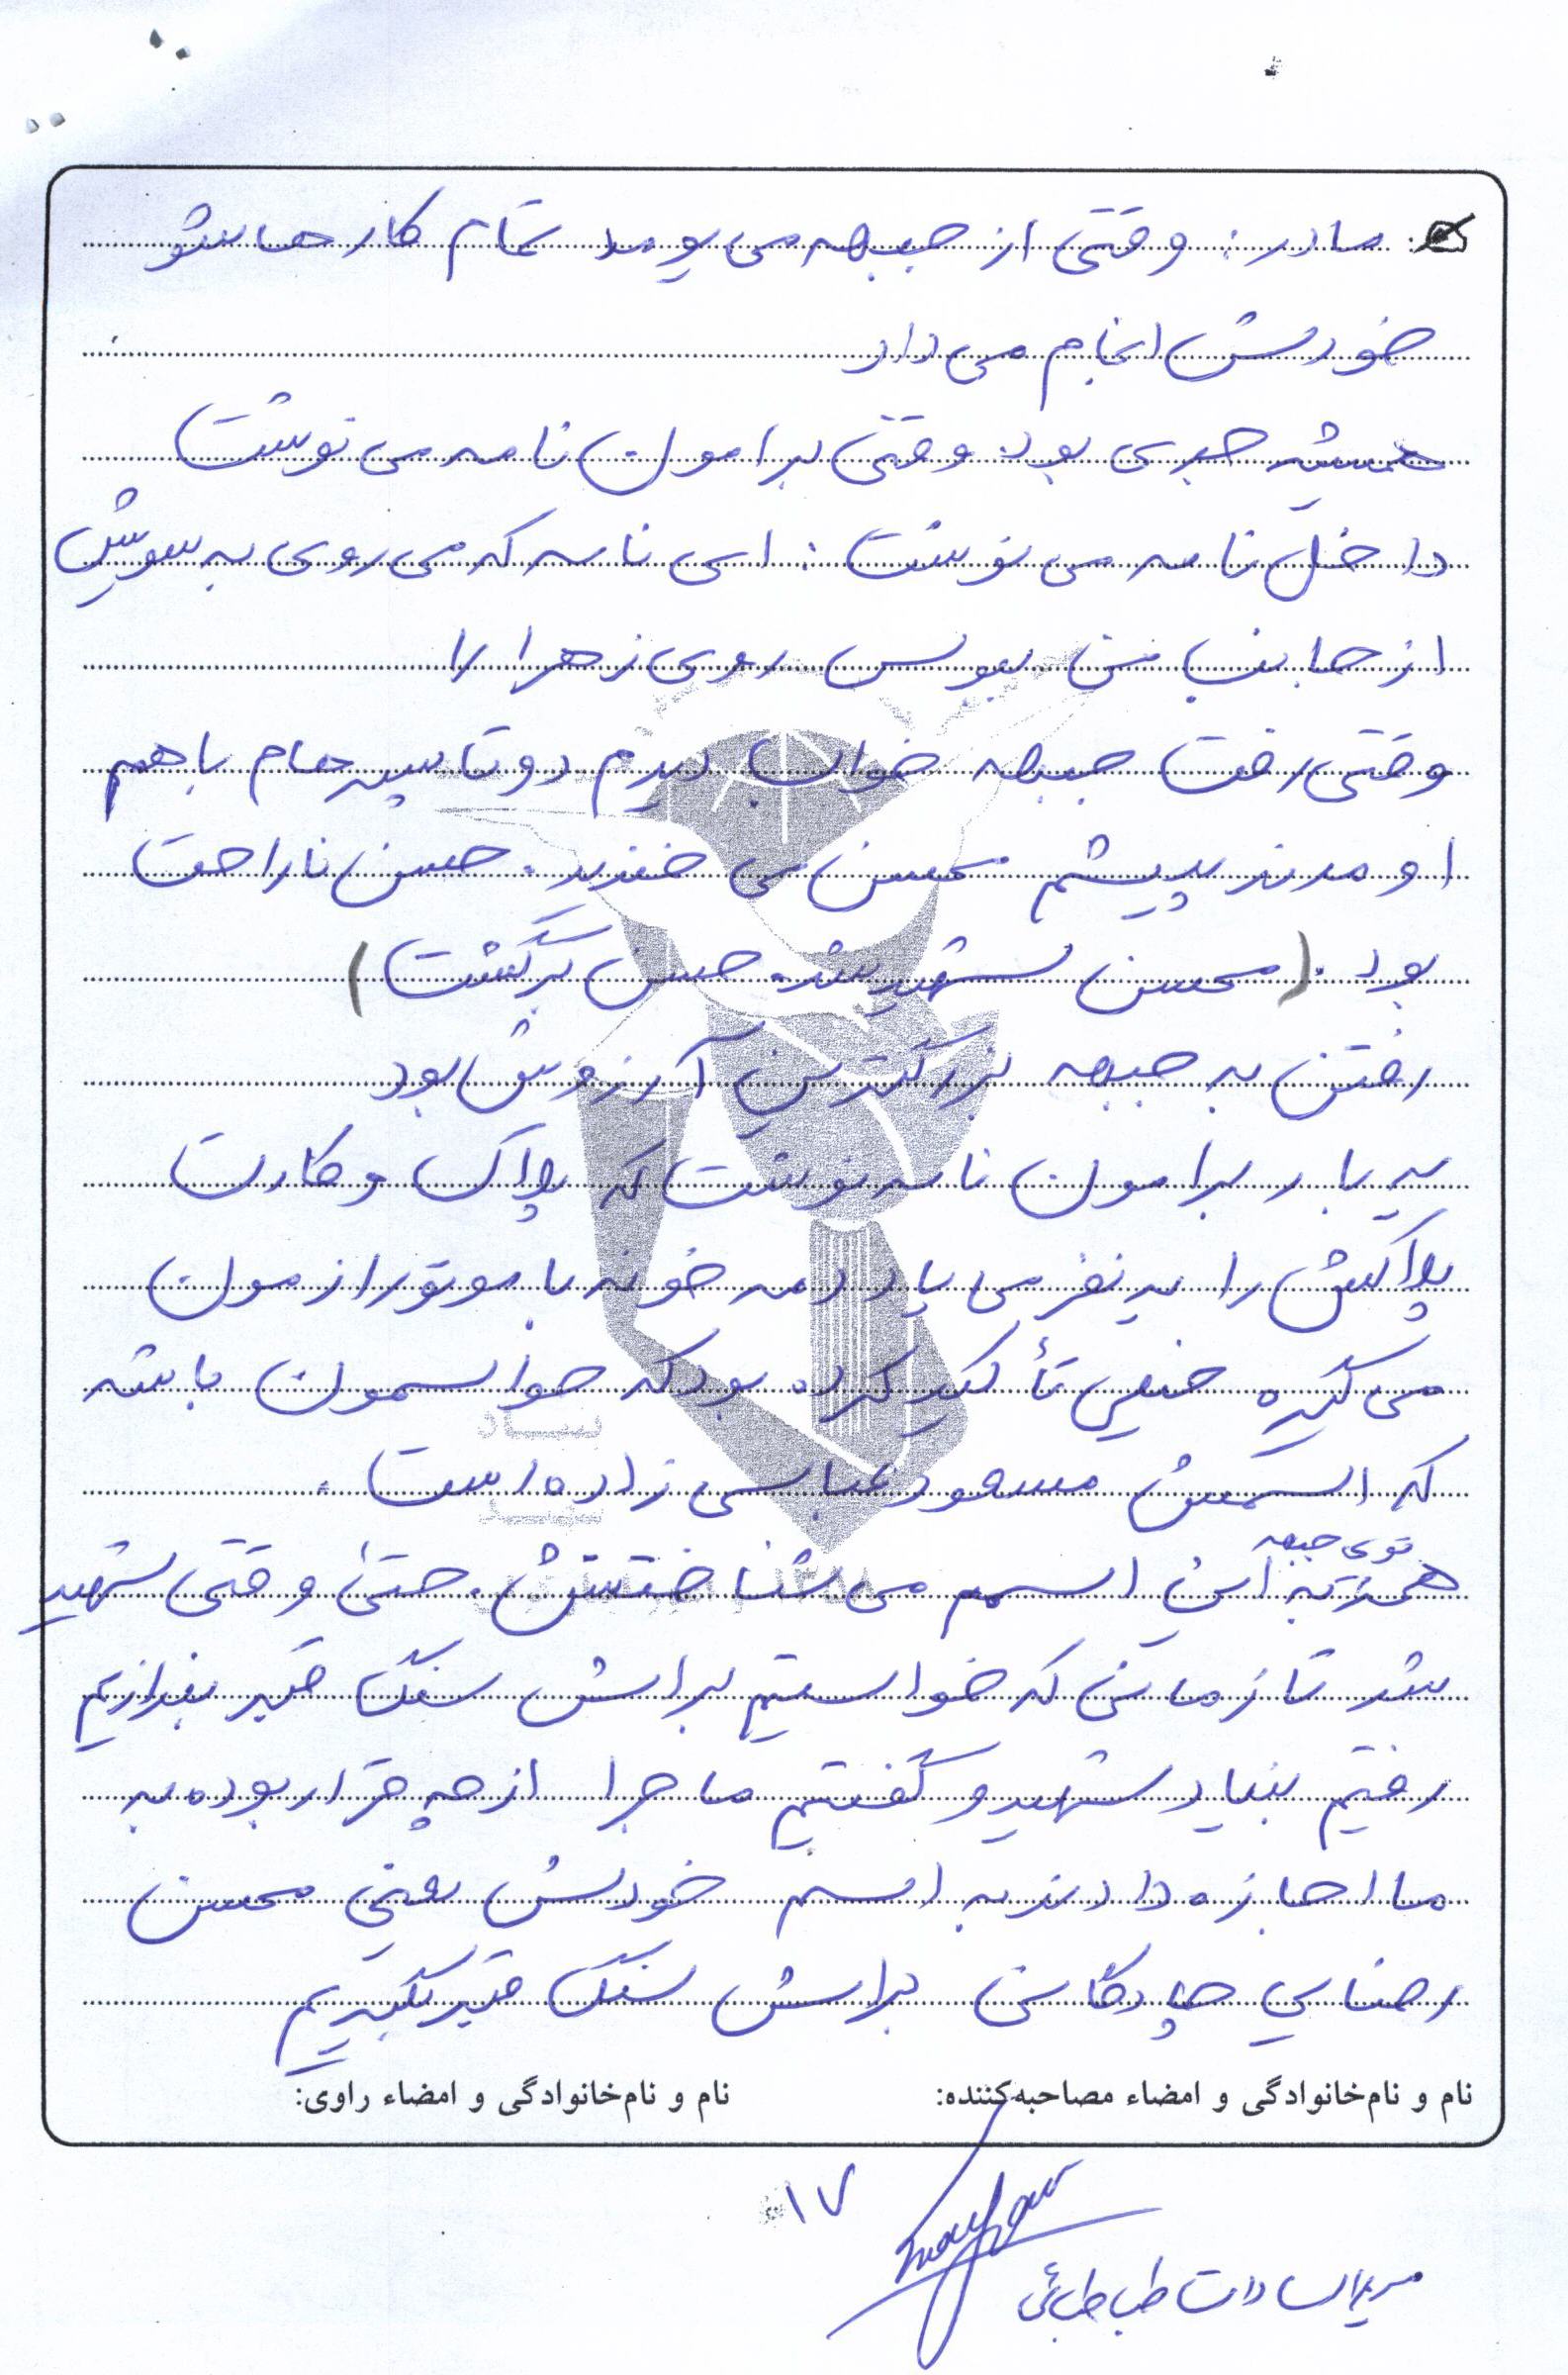 مادر: وقتی از جبهه می یومد تمام کارهاشو
خودش انجام می داد
همیشه جبری بود وقتی برامون نامه می نوشت
داخل نامه می نوشت: ای نامه که می روی به سویش
از جانب من ببوس روی زهرا را
وقتی رفت جبهه خواب دیدم دو تا پسرهام باهم
اومدند پیشم محسن می خندید. حسن ناراحت
بود. (محسن شهید شد. حسن برگشت)
رفتن به جبهه بزرگترین آرزویش بود
یه بار برامون نامه نوشت که پلاک و کارت
پلاکش را یه نفر می یاد دمه خونه با موتور ازمون
می گیره خیلی تأکید کرده بود که حواسمون باشه
که اسمش مسعود عباسی زاده است.
توی جبهه
همه به این اسم می شناختنش. حتی وقتی شهید
شد تا زمانی که خواستیم براش سنگ قبر بندازیم
رفتیم بنیاد شهید و گفتیم ماجرا از چه قرار بوده به
ما اجازه دادند به اسم خودش یعنی محسن
رضایی چادکانی براش سنگ قبر بگیریم
نام و نام‌خانوادگی و امضاء مصاحبه‌کننده:
نام و نام‌خانوادگی و امضاء راوی:
۱۷
مریم السادات طباطبائی